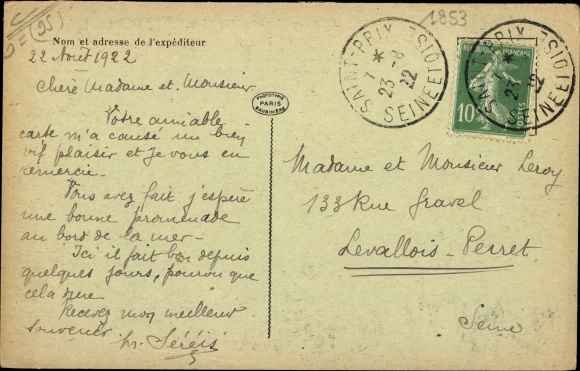 (95)
1853
Nom et adresse de l'expéditeur
22 Août 1922
Chère Madame et Monsieur
Votre aimable
carte m'a causé un bien
vif plaisir et je vous en
remercie.
Vous avez fait j'espère
une bonne promenade
au bord de la mer.
Ici il fait bon depuis
quelques jours, pourvu que
cela dure
Recevez mon meilleur
souvenir
PHOTOTYPIE
PARIS
BAUDINIÈRE
SAINT-PRIX
SEINE ET OISE
7 *
23 - 8
22
SAINT-PRIX
SEINE ET OISE
7 *
23 - 8
22
RÉPUBLIQUE FRANÇAISE
10c
POSTES
Madame et Monsieur Leroy
133 Rue Gravel
Levallois-Perret
Seine